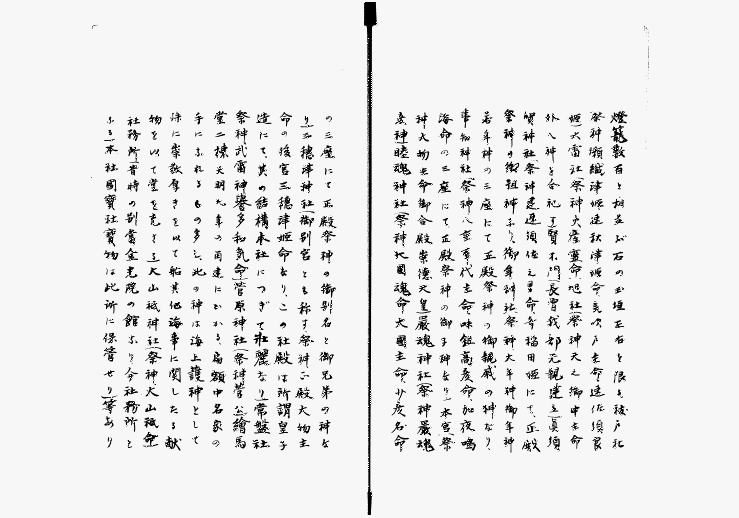 燈籠数百と相並び石の玉垣正右を限る祓戸社
祭神瀬織津姫速秋津姫命気吹戸主命速佐須良
姫大雷社(祭神火産霊命)旭社(祭神天之御中主命
外八神を合祀す)賢木門(長曽我部元親建る)真須
賀神社(祭神建速須佐之男命奇稲田姫にて正殿
祭神の御祖神なり)御年神社(祭神大年神御年神
若年神の三座にて正殿祭神の御親戚の神なり)
事知神社(祭神八重事代主命味鉏高彦命加夜鳴
海命の三座にて正殿祭神の御子神なり)本宮(祭
神大物主命御合殿崇徳天皇)厳魂神社(祭神厳魂
彦神)睦魂神社(祭神地国魂命大国主命少彦名命
の三座にて正殿祭神の御別名と御兄弟の神な
り)三穂津神社(御別宮とも称す祭神正殿大物主
命の後宮三穂津姫命なり、この社殿は所謂皇子
造にて、其の結構本社につぎて壮麗なり)常盤社
祭神武雷神誉多和気命)菅原神社(祭神菅公)絵馬
堂二棟天明九年の再建にかかる扁額中名家の
手になれるもの多し、此の神は海上護神として
殊に崇敬厚きを以て船其他海事に関したる献
物を以て堂を充す)大山祇神社(祭神大山祇命)
社務所(昔時の別当金光院の館なり今社務所と
なる)本社国宝社宝物は此所に保管せり)等あり